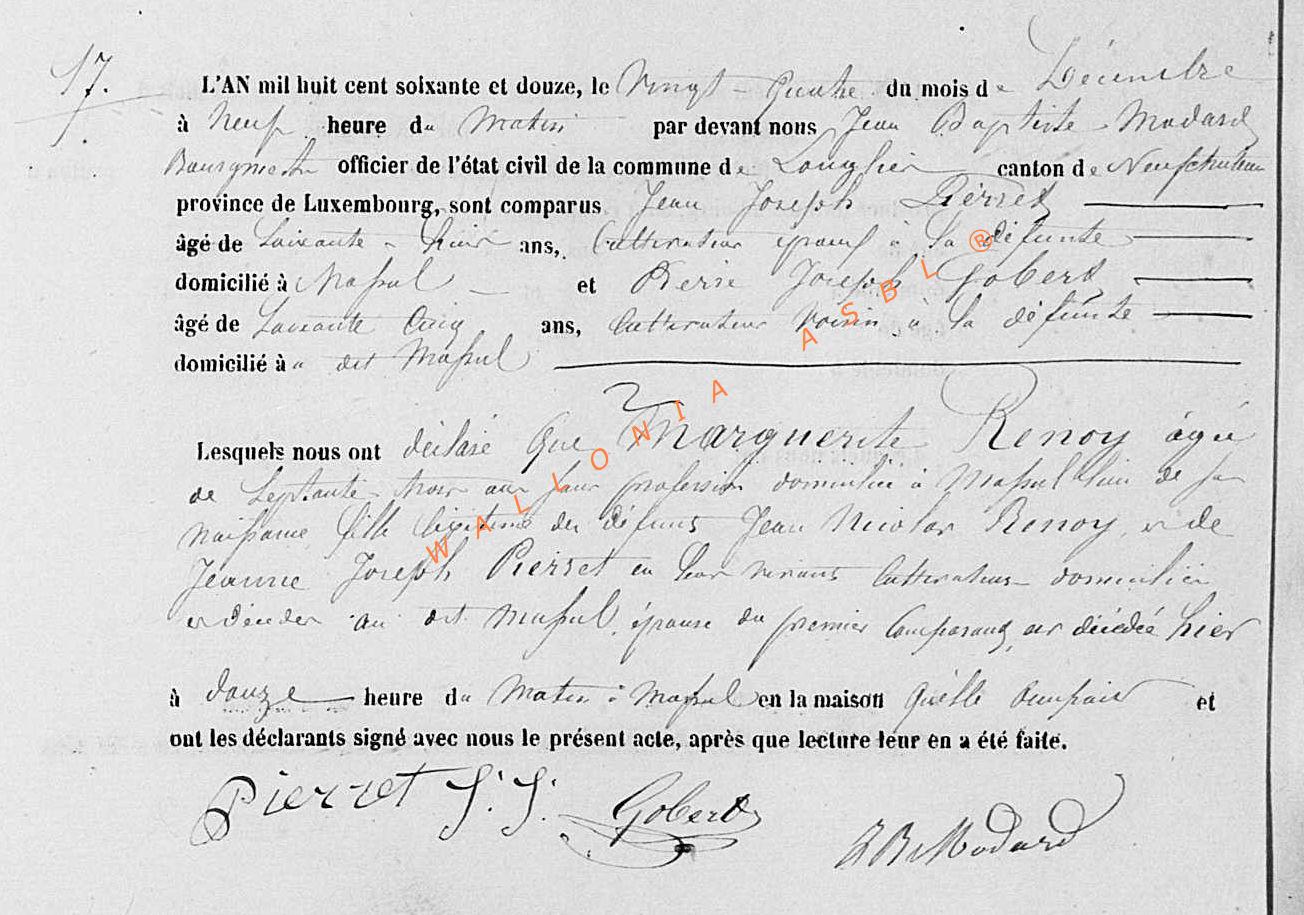 17.
L'AN mil huit cent soixante et douze, le Vingt-Quatre du mois de Décembre
à Neuf heure du Matin par devant nous Jean Baptiste Modard
Bourgmestre officier de l'état civil de la commune de Longlier canton de Neufchateau
province de Luxembourg, sont comparus Jean Joseph Pierret
âgé de Soixante-huit ans, Cultivateur époux à la défunte
domicilié à Massul et Pierre Joseph Gobert
âgé de Soixante Cinq ans, Cultivateur Voisin à la défunte
domicilié à dit Massul
Lesquels nous ont déclaré Que Marguerite Renoy agée
de Septante-trois ans sans profession domiciliée à Massul lieu de sa
naissance fille légitime des défunts Jean Nicolas Renoy et de
Jeanne Joseph Pierret en leur vivant Cultivateurs domiciliés
et décédés au dit Massul, épouse du premier Comparant, est décédée hier
à douze heure du Matin à Massul en la maison quelle occupait et
ont les déclarants signé avec nous le présent acte, après que lecture leur en a été faite.
Pierret J. J. Gobert
J B Modard
WALLONIA ASBL ®